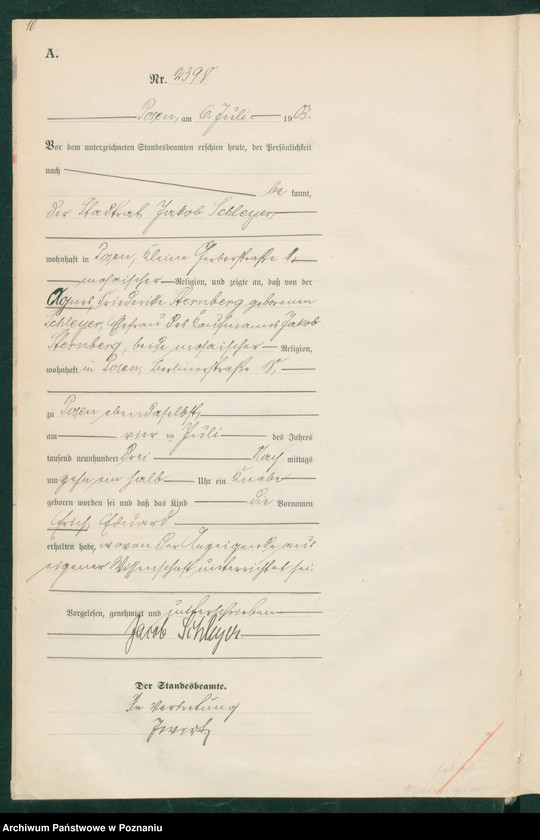 10
A.
Nr. 2398
Posen, am 6. Juli 1903.
Vor dem unterzeichneten Standesbeamten erschien heute, der Persönlichkeit
nach
be kannt,
der Stadtrat Jakob Schleyer,
wohnhaft in Posen, Kleine Gerberstraße
mosaischer Religion, und zeigte an, daß von der
Agnes, Friederike Sternberg geborenen
Schleyer, Ehefrau des Kaufmanns Jakob
Sternberg, beide mosaischer Religion,
wohnhaft in Posen, Berlinerstraße
zu Posen ebendaselbst,
am vier ten Juli des Jahres
tausend neunhundert drei Nach mittags
um zehn ein halb Uhr ein Knabe
geboren worden sei und daß das Kind die Vornamen
Erich, Eduard
erhalten habe, wovon der Anzeigende aus
eigener Wissenschaft unterrichtet sei
Vorgelesen, genehmigt und unterschrieben
Jacob Schleyer
Der Standesbeamte.
In Vertretung
Archiwum Państwowe w Poznaniu